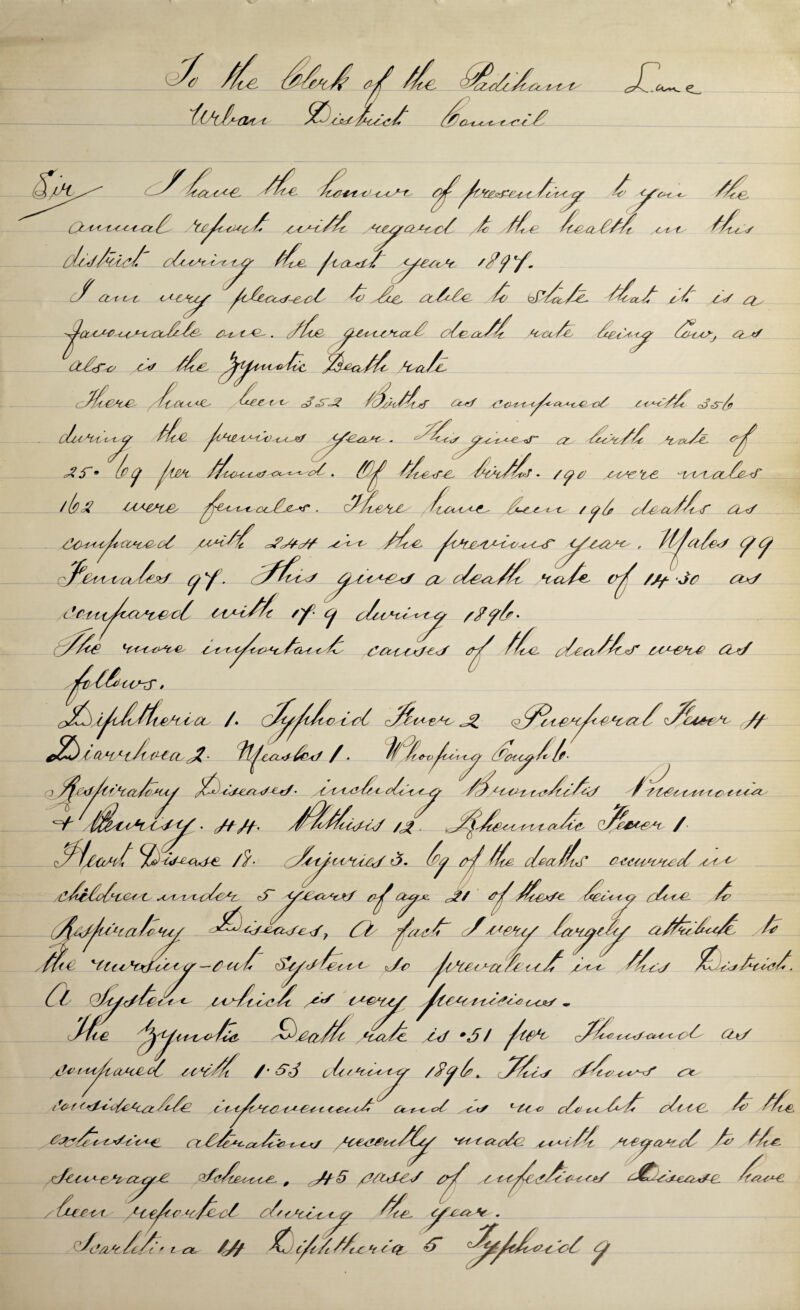 To the Clerk of the Padiham Lane
Urban District Council
Sir I have the honour of presenting to you the
annual report with regard to the health in this
district during the past year 1897.
I am very pleased to be able to State that it is a
favourable one. The general death rate being Low, as
also is the Zymotic Death rate
There have been 352 Births as compared with 356
during the previous year. This gives a birth rate of
25.69 per thousand. Of these births. 190 were males
162 were females. There have been 196 deaths as
compared with 244 in the previous year. Males 99
Females 97. This gives a death rate of 14.30 as
compared with 17.9 during 1896.
The more important causes of the deaths were as
follows.
Diphtheria 1. Typhoid Fever 2 Puerperal Fever 4
Diarrhoea 2. Measles 1. Whooping Cough 6.
Respiratory Diseases. including Bronchitis Pneumonia
+ Pleurisy. 44. Phthisis 12. Rheumatic Fever 1
Heart Disease 18. Injuries 3. 69 of the deaths occurred in
children under 5 years of age 21 of these being due to
Respiratory Diseases, A fact I very largely attribute to
the nursing-out System so prevalent in this District.
A System which is very pernicious -
The Zymotic Death rate is .51 per Thousand as
compared with 1.53 during 1896. This Shows a
considerable improvement and is no doubt due to the
extensive alterations recently made with regard to the
sewerage Scheme. 45 cases of infectious Disease have
been reported during the year.
Scarlatina 14 Diphtheria 5 Typhoid 9